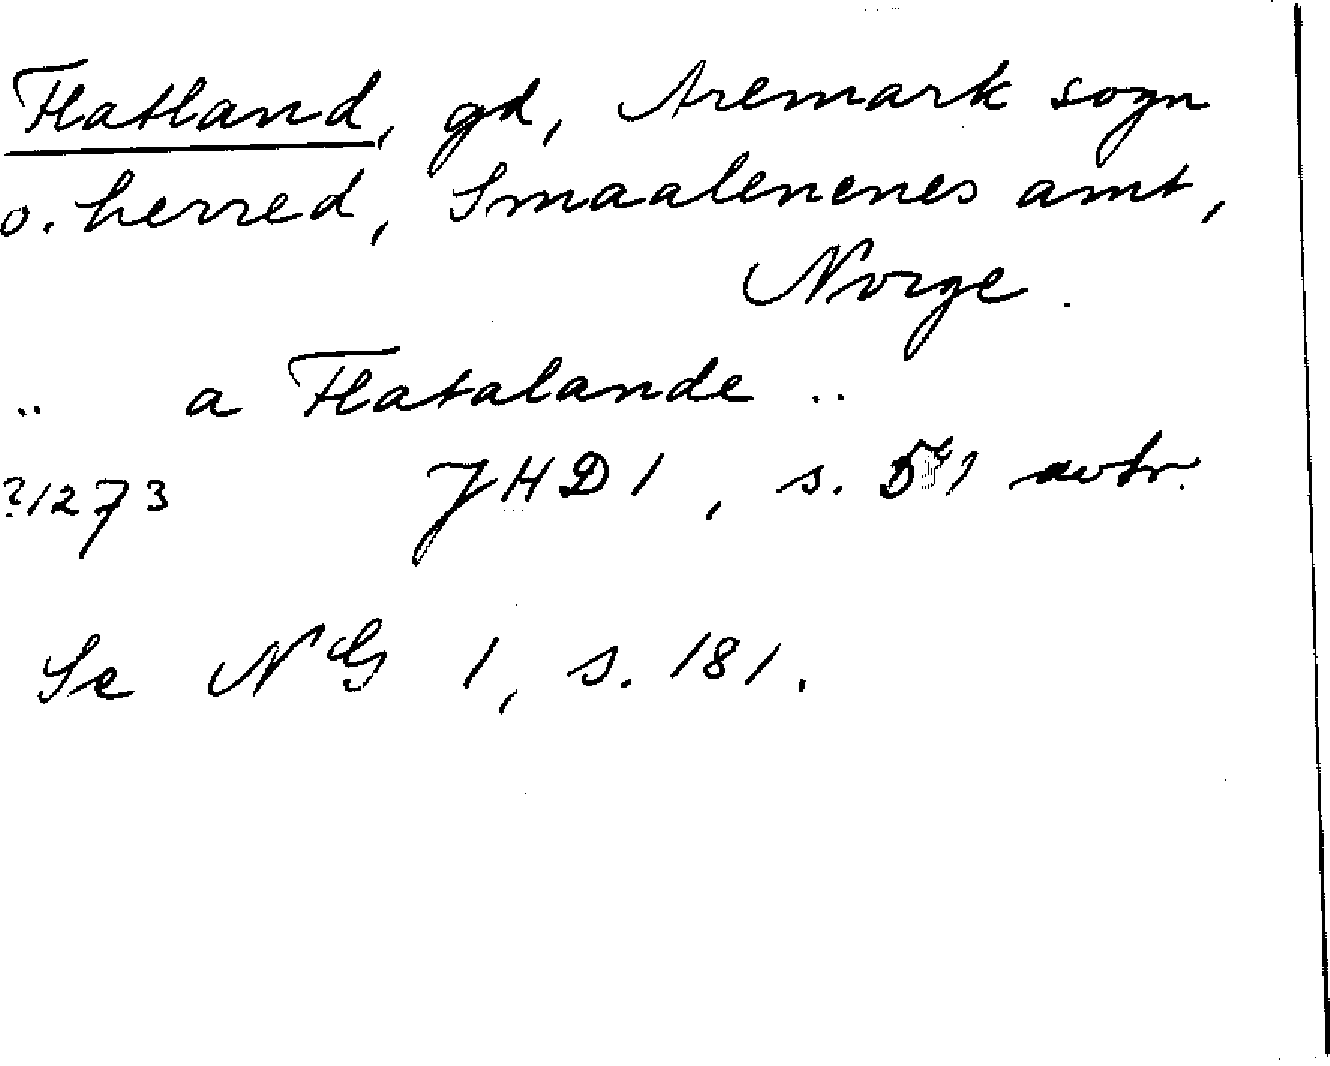 Flatland, gd, Aremark sogn
o. herred, Smaalenenes amt,
Norge.
.. a Flatalande ..
?1273 JHD 1, s. avtr.
Se NG 1, s. 181.